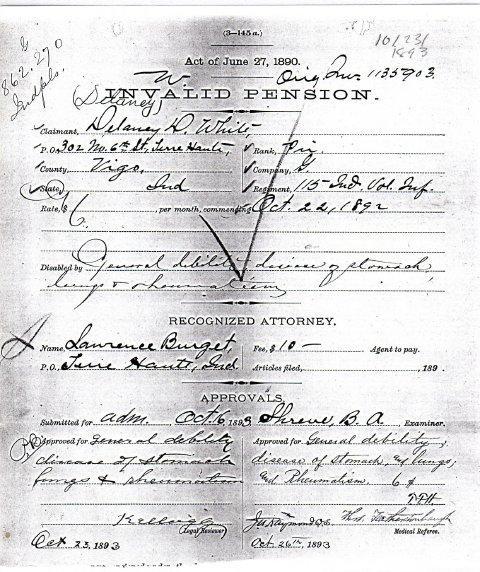 (3-145 a.)
10/23/
1893
Act of June 27, 1890.
862.270
Indpls.
Orig. Inv. 1135903
INVALID PENSION.
(Delaney)
Claimant, Delaney D. White
P.O. 302 No. 6th St. Terre Haute, Rank, Pri
County Vigo, Company, G
State, Ind Regiment, 115 Ind. Vol. Inf.
Rate, $ 6 , per month, commencing Oct. 22, 1892
Disabled by General debility disease of stomach,
lungs & rheumatism
RECOGNIZED ATTORNEY.
Name, Lawrence Burget, Fee, $ 10 — Agent to pay.
P.O. Terre Haute, Ind Articles filed, , 189 .
APPROVALS.
Submitted for adm. Oct. 6, 1893 Shreve, B. A. Examiner.
Approved for General debility Approved for General debility,
disease of stomach disease of stomach, lungs,
lungs & rheumatism and Rheumatism. 6
Kellogg
(Legal Reviewer) Medical Referee.
Oct 23, 1893 Oct. 26th, 1893